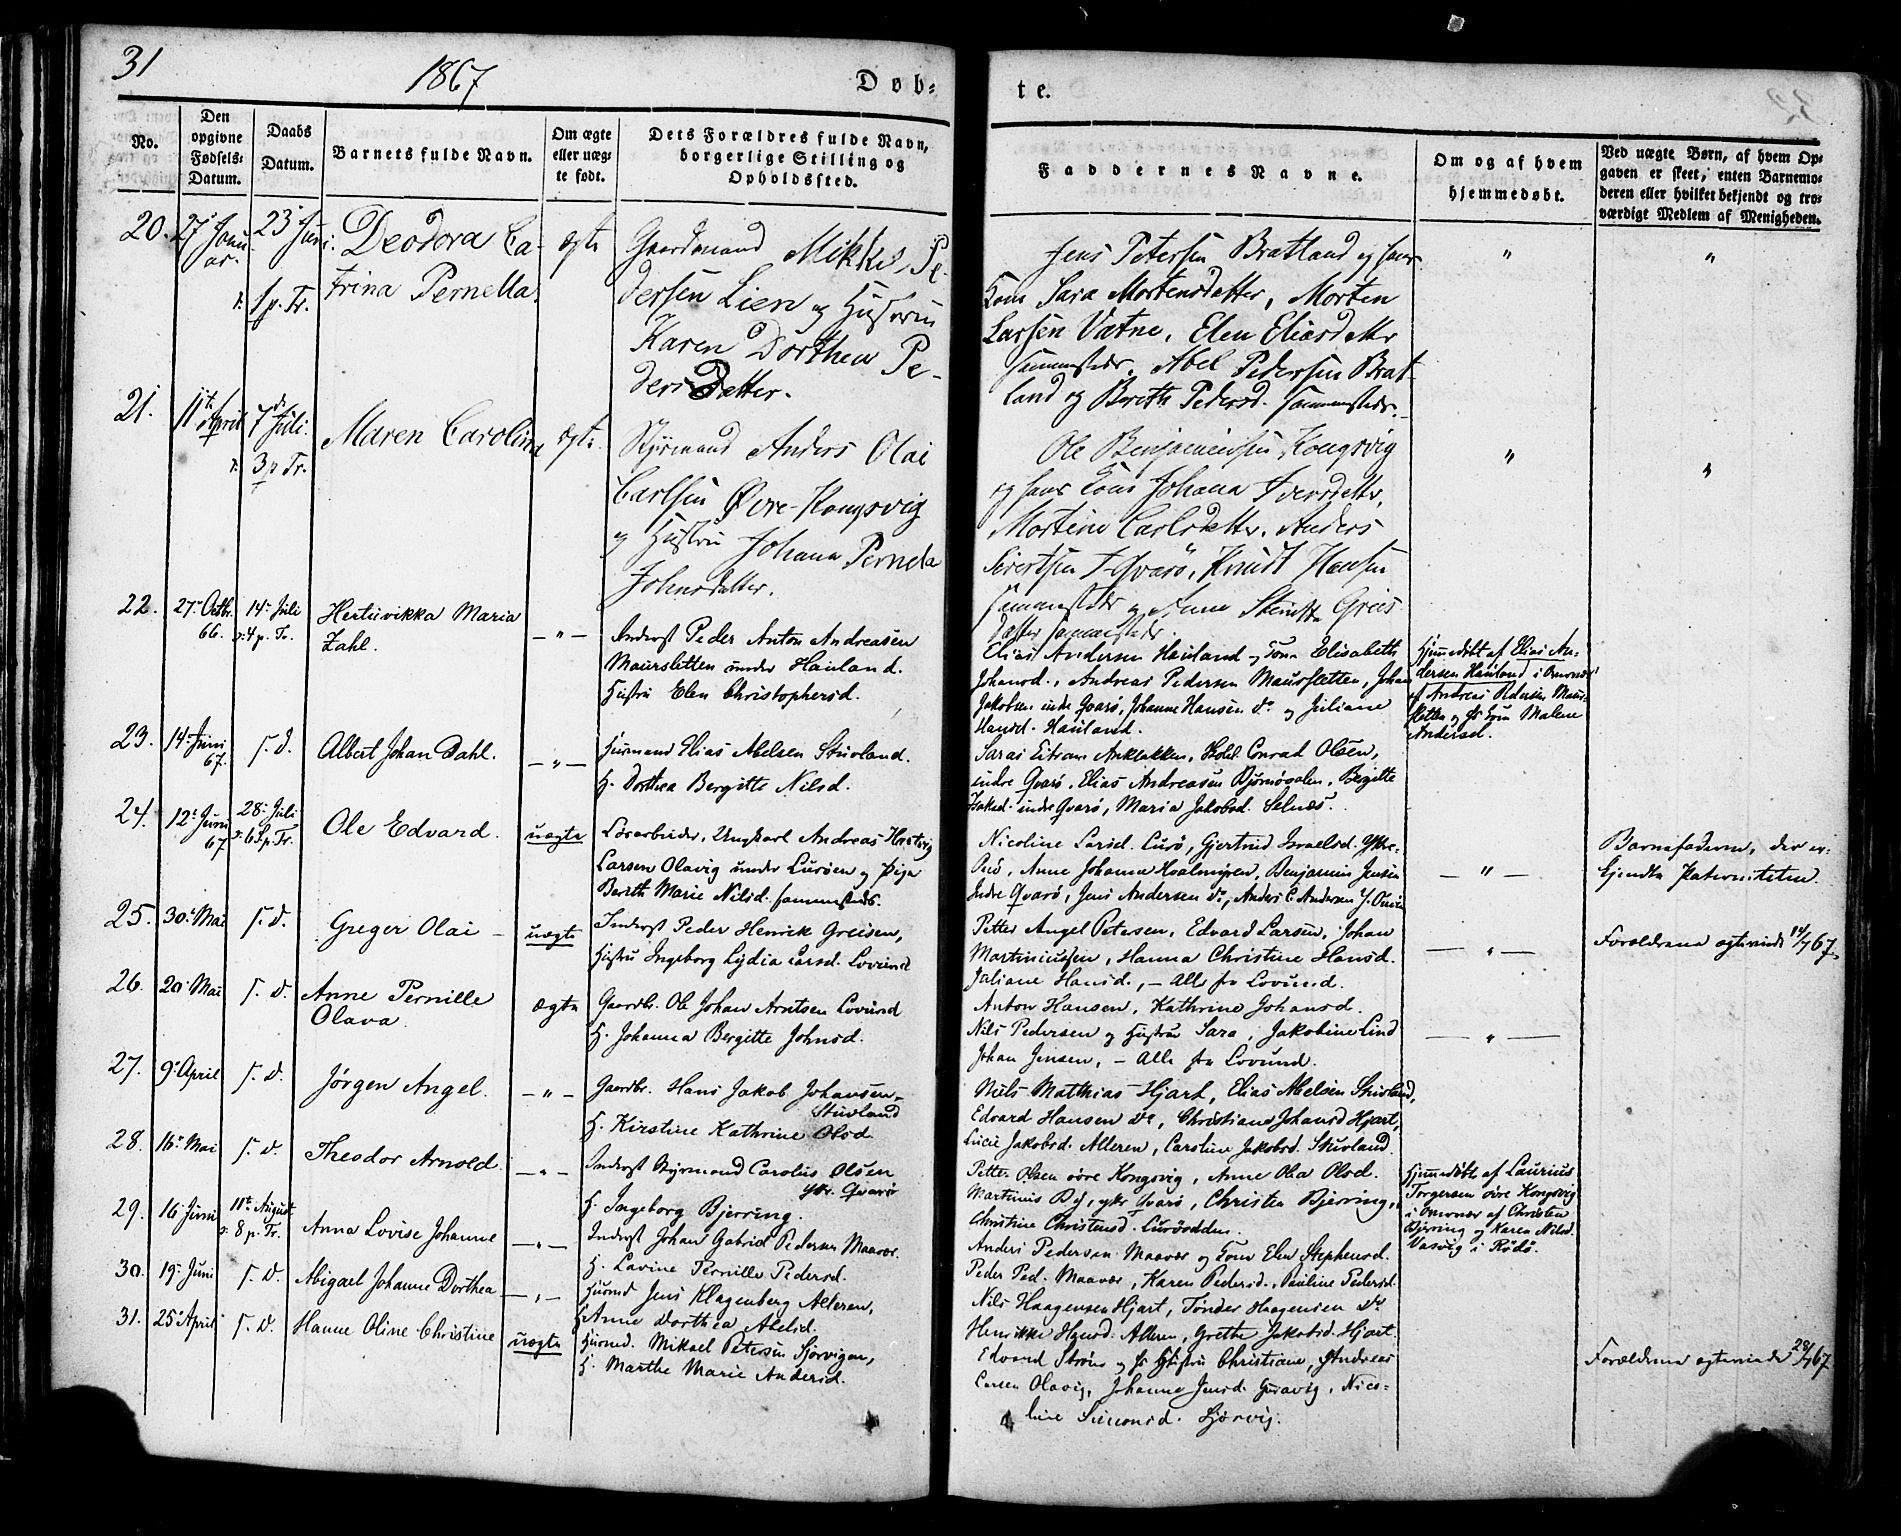 31
1867
Døb-
te.
No.
Den
opgivne
Fødsels-
Datum.
Daabs
Datum.
Barnets fulde Navn.
Om ægte
eller uæg-
te født.
Dets Forældres fulde Navn,
borgerlige Stilling og
Opholdssted.
Faddernes Navne.
Om og af hvem
hjemmedøbt.
Ved uægte Børn, af hvem Op-
gaven er skeet, enten Barnemo-
deren eller hvilket bekjendt og tro-
værdigt Medlem af Menigheden.
20.
27 Janu
ar.
23 Juni
S. p. Tr.
Deodora Ca-
trina Pernella.
ægte
Gaardmand Mikkel Pe-
dersen Lien og Hustru
Karen Dorthea Pe-
ders Datter.
Jens Petersen Bratland og hans
Kone Sara Mortensdatter, Morten
Larsen Vatne, Elen Eliasdatter
sammesteds. Abel Pedersen Brat-
land og Bereth Pedersd. sammesteds.
"
"
21.
11te April
7de Juli
3 p Tr.
Maren Carolina
ægte.
Styrmand Anders Olai
Carlsen Øvre-Kongsvig
og Hustru Johana Pernela
Johnsdatter.
Ole Benjaminsen Kongsvig
og hans Kone Johana Iversdatter,
Mortine Carlsdatter. Anders
Sivertsen Qvarø, Knudt Hansen
sammesteds og Anne Greis
Datter sammesteds.
"
"
22.
27 Octbr.
66.
14 Juli
4 p. Tr.
Hertuvikka Maria
Zahl.
— " —
Inderst Peder Anton Andreasen
Mausletten under Hauland.
Hustru Elen Christophersd.
Elias Andersen Hauland og Kone Elisabeth
Johansd., Andreas Pedersen Mausletten, Johan
Jakobsen indre Qvarø, Johanne Hansen do og Juliane
Hansd. Hauland.
Hjemmedøbt af Elias An-
dersen Hauland i Overvær
af Andreas Pedersen Maus-
sletten og hs Kone Malene
Andersd.
23.
14 Juni
67.
s. d.
Albert Johan Dahl.
— " —
Huusmand Elias Abelsen Stuvland.
H. Dorthea Bergitte Nilsd.
Sarai Conrad Olsen,
indre Qvarø, Elias Andreasen Bjørnsgalen, Bergitte
Jakobsd. indre Qvarø, Maria Jakobsd. Selnæs.
24.
12 Juni
67
28 Juli
6 S. p. Tr.
Ole Edvard.
uægte
Løsarbeider, Ungkarl Andreas Hartvig
Larsen Olavig under Lurøen og Pige
Bereth Marie Nilsd. sammesteds.
Nicoline Larsd. Lurø, Gjertrud Israelsd. Yttre-
Onø, Anne Johanna Hvalmyren, Benjamin Jensen
Indre Qvarø, Jens Andersen do, Anders C. Andersen
— " —
Barnefaderen, der er-
kjendte Paterniteten.
25.
30 Mai
s. d.
Greger Olai —
uægte
Inderst Peder Henrik Greisen,
Hustru Ingeborg Lydia Larsd. Lovund
Petter Angel Petersen, Edvard Larsen, Johan
Martiniussen, Hanna Christine Hansd.
Juliane Hansd., — Alle fra Lovund.
— " —
Forældrene ægteviede 14/7 67.
26.
20 Mai
s. d.
Anne Pernille
Olava.
ægte
Gaardbr. Ole Johan Arntsen Lovund
H. Johanna Bergitte Johnsd.
Anton Hansen, Kathrine Johansd.
Nils Pedersen og Hustru Sara, Jakobine Lind
Johan Jensen, — Alle fra Lovund.
— " —
27.
9 April
s. d.
Jørgen Angel.
— " —
Gaardbr. Hans Jakob Johansen
Stuvland
H. Kirstine Kathrine Olsd.
Nils Matthias Hjart, Elias Abelsen Stuvland,
Edvard Hansen do, Christiane Johansd Hjart,
Lucie Jakobsd. Alteren, Caroline Jakobsd. Stuvland.
28.
16 Mai
s. d.
Theodor Arnold.
— " —
Inderst Styrmand Carolus Olsen
Yttr. Qvarø
H. Ingeborg Bjerring.
Petter Olsen øvre Kongsvig, Anne Ola Olsd.
Martinus Qvarø, Christen Bjerring,
Christine Christensd. Lurøodden.
Hjemmedøbt af Laurius
Torgersen øvre Kongsvig
i Overvær af Christen
Bjerring og Karen Nilsd.
Vasvig i Rødø.
29.
16 Juni
11te August
8 p. Tr.
Anna Lovise Johanne
— " —
Inderst Johan Gabriel Pedersen Maavær.
H. Lavine Pernille Pedersd.
Anders Pedersen Maavær og Kone Elen Stephensd.
Peder Ped. Maavær, Karen Pedersd., Pauline Pedersd.
30.
19 Juni
s. d.
Abigael Johanne Dorthea
— " —
Huusmd Jens Klagenberg Alteren,
H. Anne Dorthea Abelsd.
Nils Haagensen Hjart, Tønder Haagensen do
Henrikke Hansd. Alteren, Grethe Jakobsd. Hjart.
31.
25 April
s. d.
Hanne Oline Christine
uægte
Huusmd. Mikael Petersen Sjørvigen,
H. Marthe Marie Andersd.
Edvard Strøm og hs Hustru Christiane, Andreas
Larsen Olavig, Johanna Jensd. Nico-
line Simonsd. Sjørvig.
Forældrene ægteviede 28/7 67.